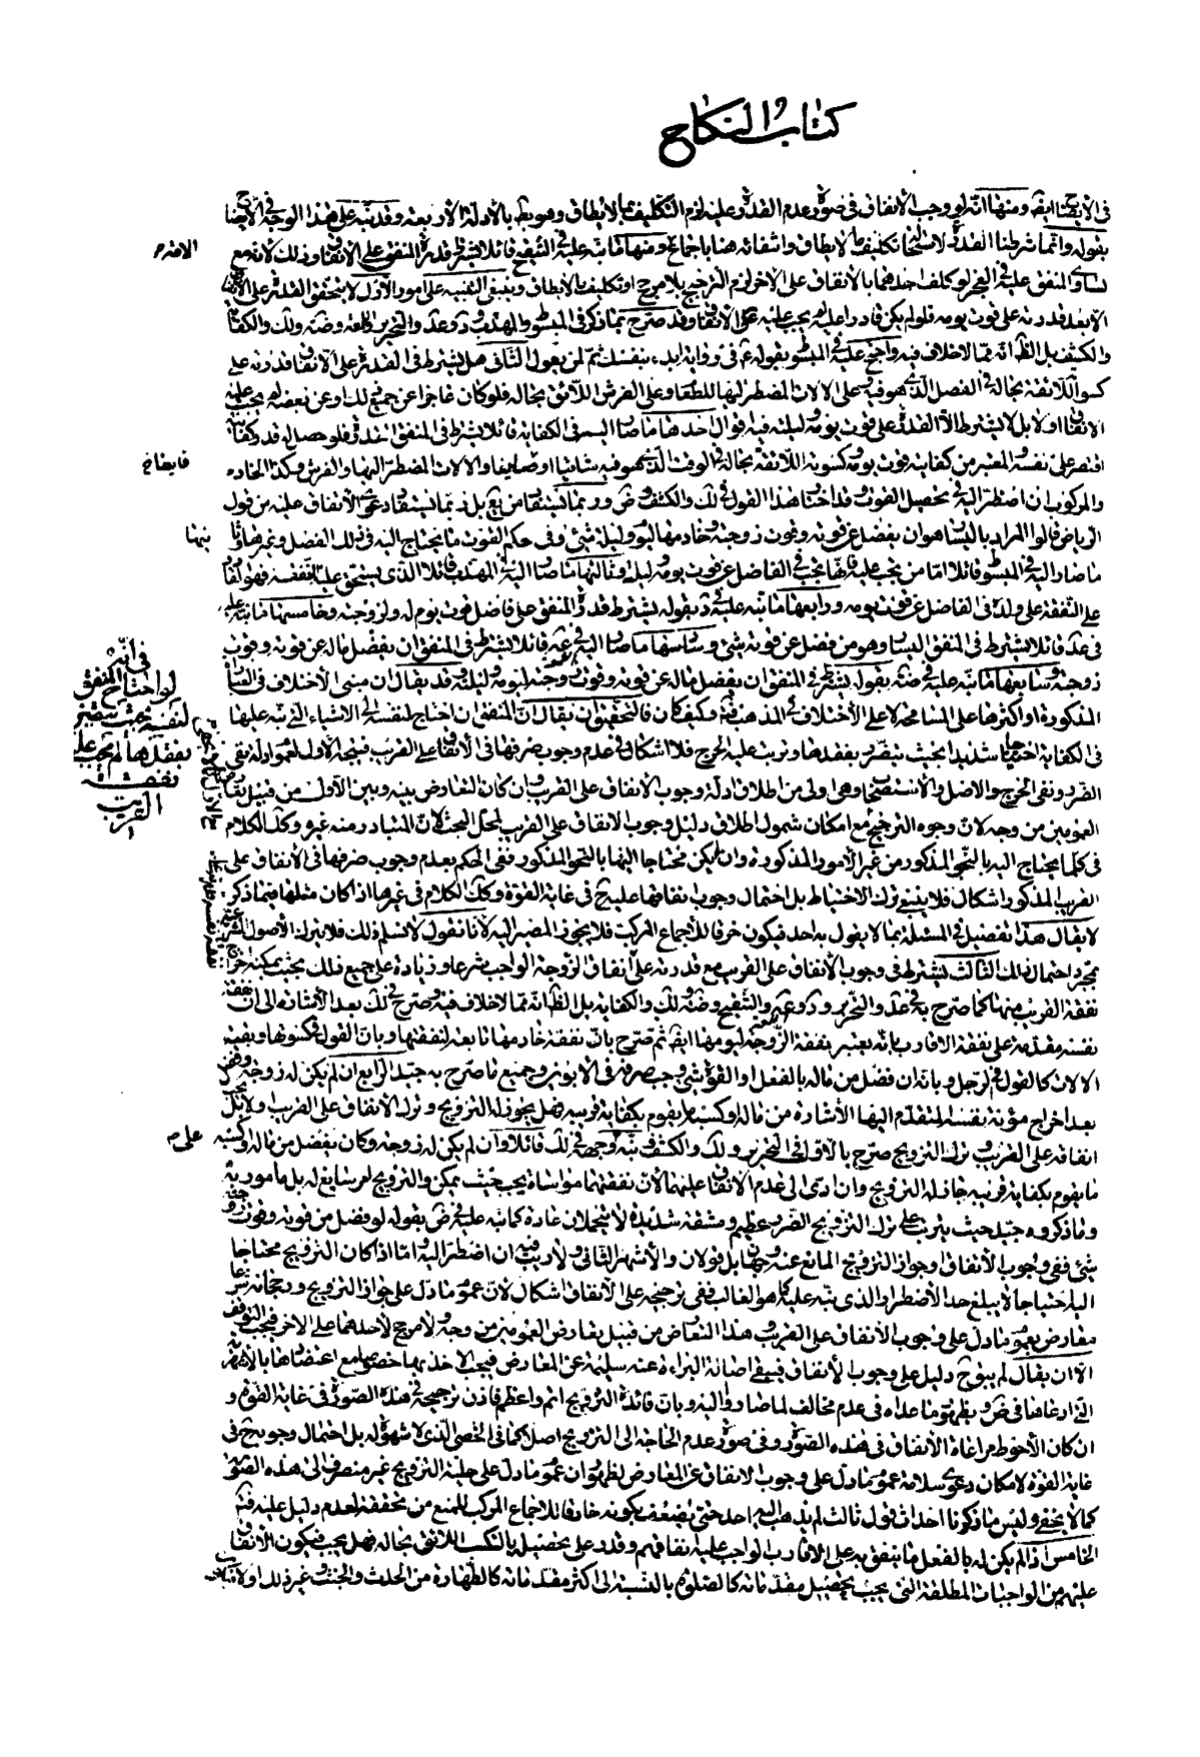 كتاب النكاح
في الايضاح ايضا ومنها انه لو وجب الانفاق في صورة عدم القدرة عليه لزم التكليف بما لا يطاق وهو بط بالادلة الاربعة وقد نبه على هذا الوجه في الايضاح
بقوله وانما شرطنا القدرة لاستحالة تكليف ما لا يطاق واتفائه هنا باجماع ومنها ما نبه عليه في التنقيح قائلا يشترط قدرة المنفق على الانفاق وذلك لانه مع
تساوى المنفق عليه في العجز لو كلف احدهما بالانفاق على الاخر لزم الترجيح بلا مرجح او تكليف ما لا يطاق وينبغى التنبيه على امور الاول لا يتحقق القدرة على الانفاق
الا بعد قدرته على قوت يومه فلو لم يكن قادرا عليه لم يجب عليه الانفاق وقد صرح بما ذكر في المبسوط والمهذب وعد والتحرير واللمعة وضه ولك والكفاية
والكشف بل الظ انه مما لا خلاف فيه واحتج عليه في المبسوط بقوله في رواية ابدء بنفسك ثم لمن يعول الثاني هل يشترط في القدرة على الانفاق قدرته على
كسوة اللائقة بحاله في الفصل الذى هو فيه وعلى الالات المضطر اليها للطعام وعلى الفرش اللائق بحاله فلو كان عاجزا عن جميع ذلك او عن بعضه لم يجب عليه
الانفاق او لا بل لا يشترط الا القدرة على قوت يومه وليلته فيه اقوال احدها ما صار اليه في الكفاية قائلا يشترط في المنفق القدرة فلو حصل له قدر كفاية
اقتصر على نفسه والمعتبر من كفايته قوت يومه وكسوته اللائقة بحاله في الوقت الذى هو فيه شاتيا او صايفا والالات المضطر اليها والفرش وكذا الخادم
والمركوب ان اضطر اليه في تحصيل القوت وقد اختار هذا القول في لك والكشف وض وربما يستفاد من يع بل ربما يستفاد دعوى الانفاق عليه من قول
الرياض قالوا المراد باليسار هو ان يفضل عن قوته وقوت زوجته وخادمها ليوم وليلة شئ وفى حكم القوت ما يحتاج اليه في ذلك الفصل وغيرها وثانيها
ما صار اليه في المبسوط قائلا اما من يجب عليه فانها تجب في الفاضل عن قوت يومه وليلته وثالثها ما صار اليه في المهذب قائلا الذى يستحق عليه النفقة فهو القادر
على النفقة على ولده في الفاضل عن قوت يومه ورابعها ما نبه عليه في د بقوله يشترط قدرة المنفق على فاضل قوت يوم له ولزوجته وخامسها ما نبه عليه
في عد قائلا يشترط في المنفق اليسار وهو من فضل عن قوته شئ وسادسها ما صار اليه في قائلا يشترط في المنفق ان يفضل ماله عن قوته وقوت
زوجته وسابعها ما نبه عليه في ضه بقوله يشترط في المنفق ان يفضل ماله عن قوته وقوت زوجته ليومه وليلته وقد يقال ان مبنى الاختلاف في العبارات
المذكورة او اكثرها على المسامحة لا على الاختلاف في المذهب وكيف كان فالتحقيق ان يقال ان المنفق ان احتاج لنفسه الى الاشياء التى نبه عليها
في الكفاية احتياجا شديدا بحيث يتضرر بفقدها ويترتب عليه الحرج فلا اشكال في عدم وجوب صرفها في الانفاق على القريب فيتجه الاول لعموم ادلة نفى
الضرر ونفى الحرج والاصل والاستصحاب وهى اولى من اطلاق ادلة وجوب الانفاق على القريب وان كان التعارض بينه وبين الاول من قبيل تعارض
العمومين من وجه لان وجوه الترجيح مع امكان شمول اطلاق دليل وجوب الانفاق على القريب لمحل البحث لان المتبادر منه غيره وكذا الكلام
في كلما يحتاج اليه بالنحو المذكور من غير الامور المذكورة وان لم يكن محتاجا اليها بالنحو المذكور ففى الحكم بعدم وجوب صرفها في الانفاق على
القريب المذكور اشكال فلا ينبغى ترك الاحتياط بل احتمال وجوب انفاقها عليه ح في غاية القوة وكذا الكلام في غيرها اذا كان مثلها فيما ذكر
لا يقال هذا تفصيل في المسئلة مما لا يقول به احد فيكون خرقا للاجماع المركب فلا يجوز المصير اليه لانا نقول لا نسلم ذلك فلا يترك الاصول الشرعية
بمجرد احتمال ذلك الثالث يشترط في وجوب الانفاق على القريب مع قدرته على انفاق الزوجة الواجب شرعا وزيادة على جميع ذلك بحيث يمكنه اخراج
نفقة القريب منها كما صرح به في عد والتحرير ود وغيره والتنقيح وضه ولك والكفاية بل الظ انه مما لا خلاف فيه وصرح في لك بعد الاشارة الى ان نفقة
نفسه مقدمة على نفقة الاقارب بانه يعتبر نفقة الزوجة ليومها ايضا ثم صرح بان نفقة خادمها تابعة لنفقتها وبان القول في كسوتها وبقية
الالات كالقول في الرجل وبانه ان فضل من ماله بالفعل او القوة شئ وجب صرفه في الابوين وجميع ما صرح به جيد الرابع ان لم يكن له زوجة وفضل
بعد اخراج مؤنة نفسه المتقدم اليها الاشارة من ماله او كسبه ما يقوم بكفاية قريبه فهل يجوز له التزويج وترك الانفاق على القريب او لا بل يجب
انفاقه على القريب وترك التزويج صرح بالاول في التحرير ولك والكشف ونبه على وجهه في لك قائلا وان لم يكن له زوجة وكان يفضل من ماله او كسبه
ما يقوم بكفاية قريبه جاز له التزويج وان ادى الى عدم الانفاق عليهما لان نفقتهما مواساة يجب حيث يمكن والتزويج امر سايغ له بل مامور به
وما ذكروه جيد حيث يترتب على ترك التزويج الضرر العظيم ومشقة شديدة لا يتحملان عادة كما نبه عليه في ض بقوله لو فضل من قوته وقوت زوجته
شئ ففى وجوب الانفاق وجواز التزويج المانع عنه وجهان بل قولان والاشهر الثانى ولا ريب فيه ان اضطر اليه واما اذا كان التزويج محتاجا
اليه احتياجا لا يبلغ حد الاضطرار الذى نبه عليه كما هو الغالب ففى ترجيحه على الانفاق اشكال لان عموم ما دل على جواز التزويج ورجحانه شرعا
معارض بعموم ما دل على وجوب الانفاق على القريب وهذا التعارض من قبيل تعارض العمومين من وجه ولا مرجح لاحدهما على الاخر فيجب التوقف
الا ان يقال لم يبق ح دليل على وجوب الانفاق فيبقى اصالة البراءة عنه سليمة عن المعارض فيجب الاخذ بها خصوصا مع اعتضادها بالاشهرية
التى ادعاها في ض وبظهور ما عداه في عدم مخالف لما صاروا اليه وبان فائدة التزويج اتم واعظم فاذن ترجيحه في هذه الصورة في غاية القوة و
ان كان الاحوط مراعاة الانفاق في هذه الصورة وفى صورة عدم الحاجة الى التزويج اصلا كما في الخصى الذى لا شهوة له بل احتمال وجوبه ح في
غاية القوة لامكان دعوى سلامة عموم ما دل على وجوب الانفاق عن المعارض لظهور ان عموم ما دل على حلية التزويج غير منصرف الى هذه الصورة
كما لا يخفى وليس ما ذكرنا احداث قول ثالث لم يذهب اليه احد حتى يضعف بكونه خارقا للاجماع المركب للمنع من تحققه لعدم دليل عليه فتم
الخامس اذا لم يكن له بالفعل ما ينفق به على الاقارب الواجب عليه نفاقهم وقدر على تحصيله بالتكسب اللائق بحاله فهل يجب فيكون الانفاق
عليهم من الواجبات المطلقة التى يجب تحصيل مقدماته كالصلوة بالنسبة الى اكثر مقدماته كالطهارة من الحدث والخبث وغير ذلك او لا
في انه
لو احتاج المنفق
لنفسه بحيث يتضرر
بفقدها لم يجب عليه
نفقة
القريب